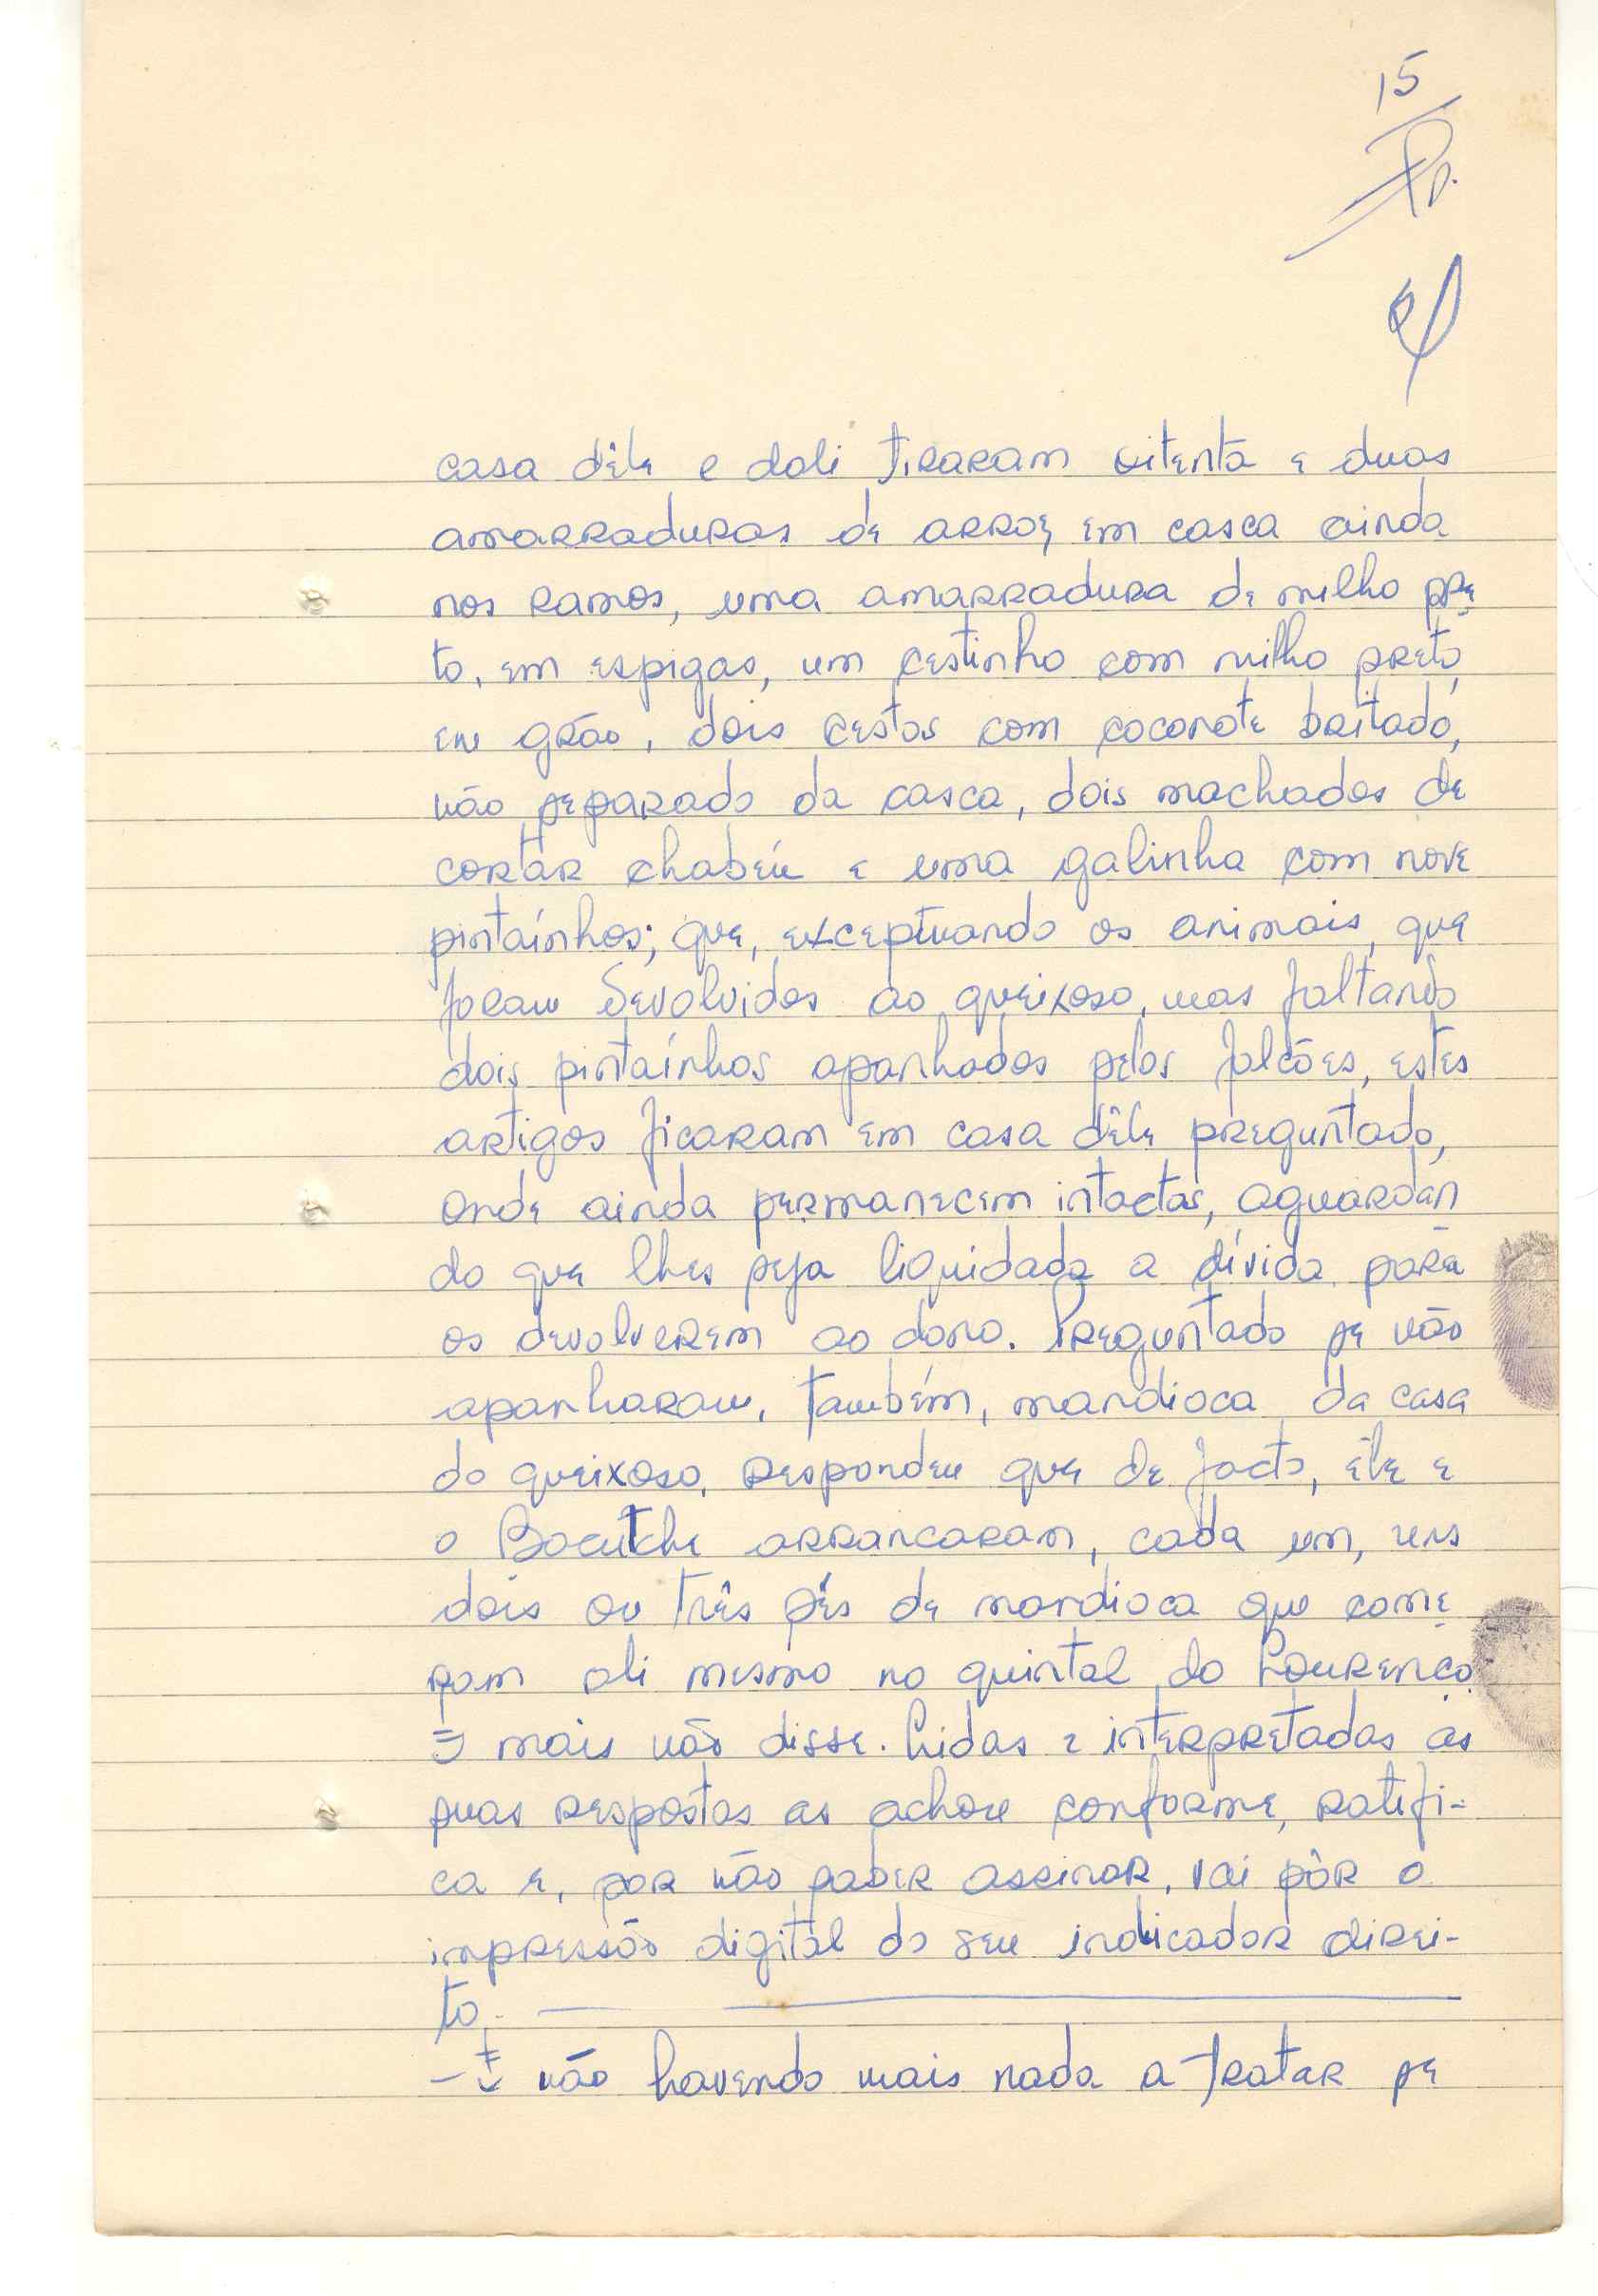 15
casa dêle e dali tiraram oitenta e duas
amarraduras de arroz em casca ainda
nos ramos, uma amarradura de milho pre
to, em espigas, um cestinho com milho preto,
em grão, dois cestos com coconote britado,
não separado da casca, dois machados de
cortar chabéu e uma galinha com nove
pintaínhos; que, exceptuando os animais, que
foram devolvidos ao queixoso, mas faltando
dois pintaínhos apanhados pelos falcões, estes
artigos ficaram em casa dêle preguntado,
onde ainda permanecem intactos, aguardan
do que lhes seja liquidada a dívida para
os devolverem ao dono. Preguntado se não
apanharam, também, mandioca da casa
do queixoso, respondeu que de facto, êle e
o Bocutche arrancaram, cada um, uns
dois ou três pés de mandioca que come
ram ali mesmo no quintal do Lourenço.
E mais não disse. Lidas e interpretadas as
suas respostas as achou conforme, ratifi-
ca e, por não saber assinar, vai pôr a
impressão digital do seu indicador direi-
to.
- E não havendo mais nada a tratar se